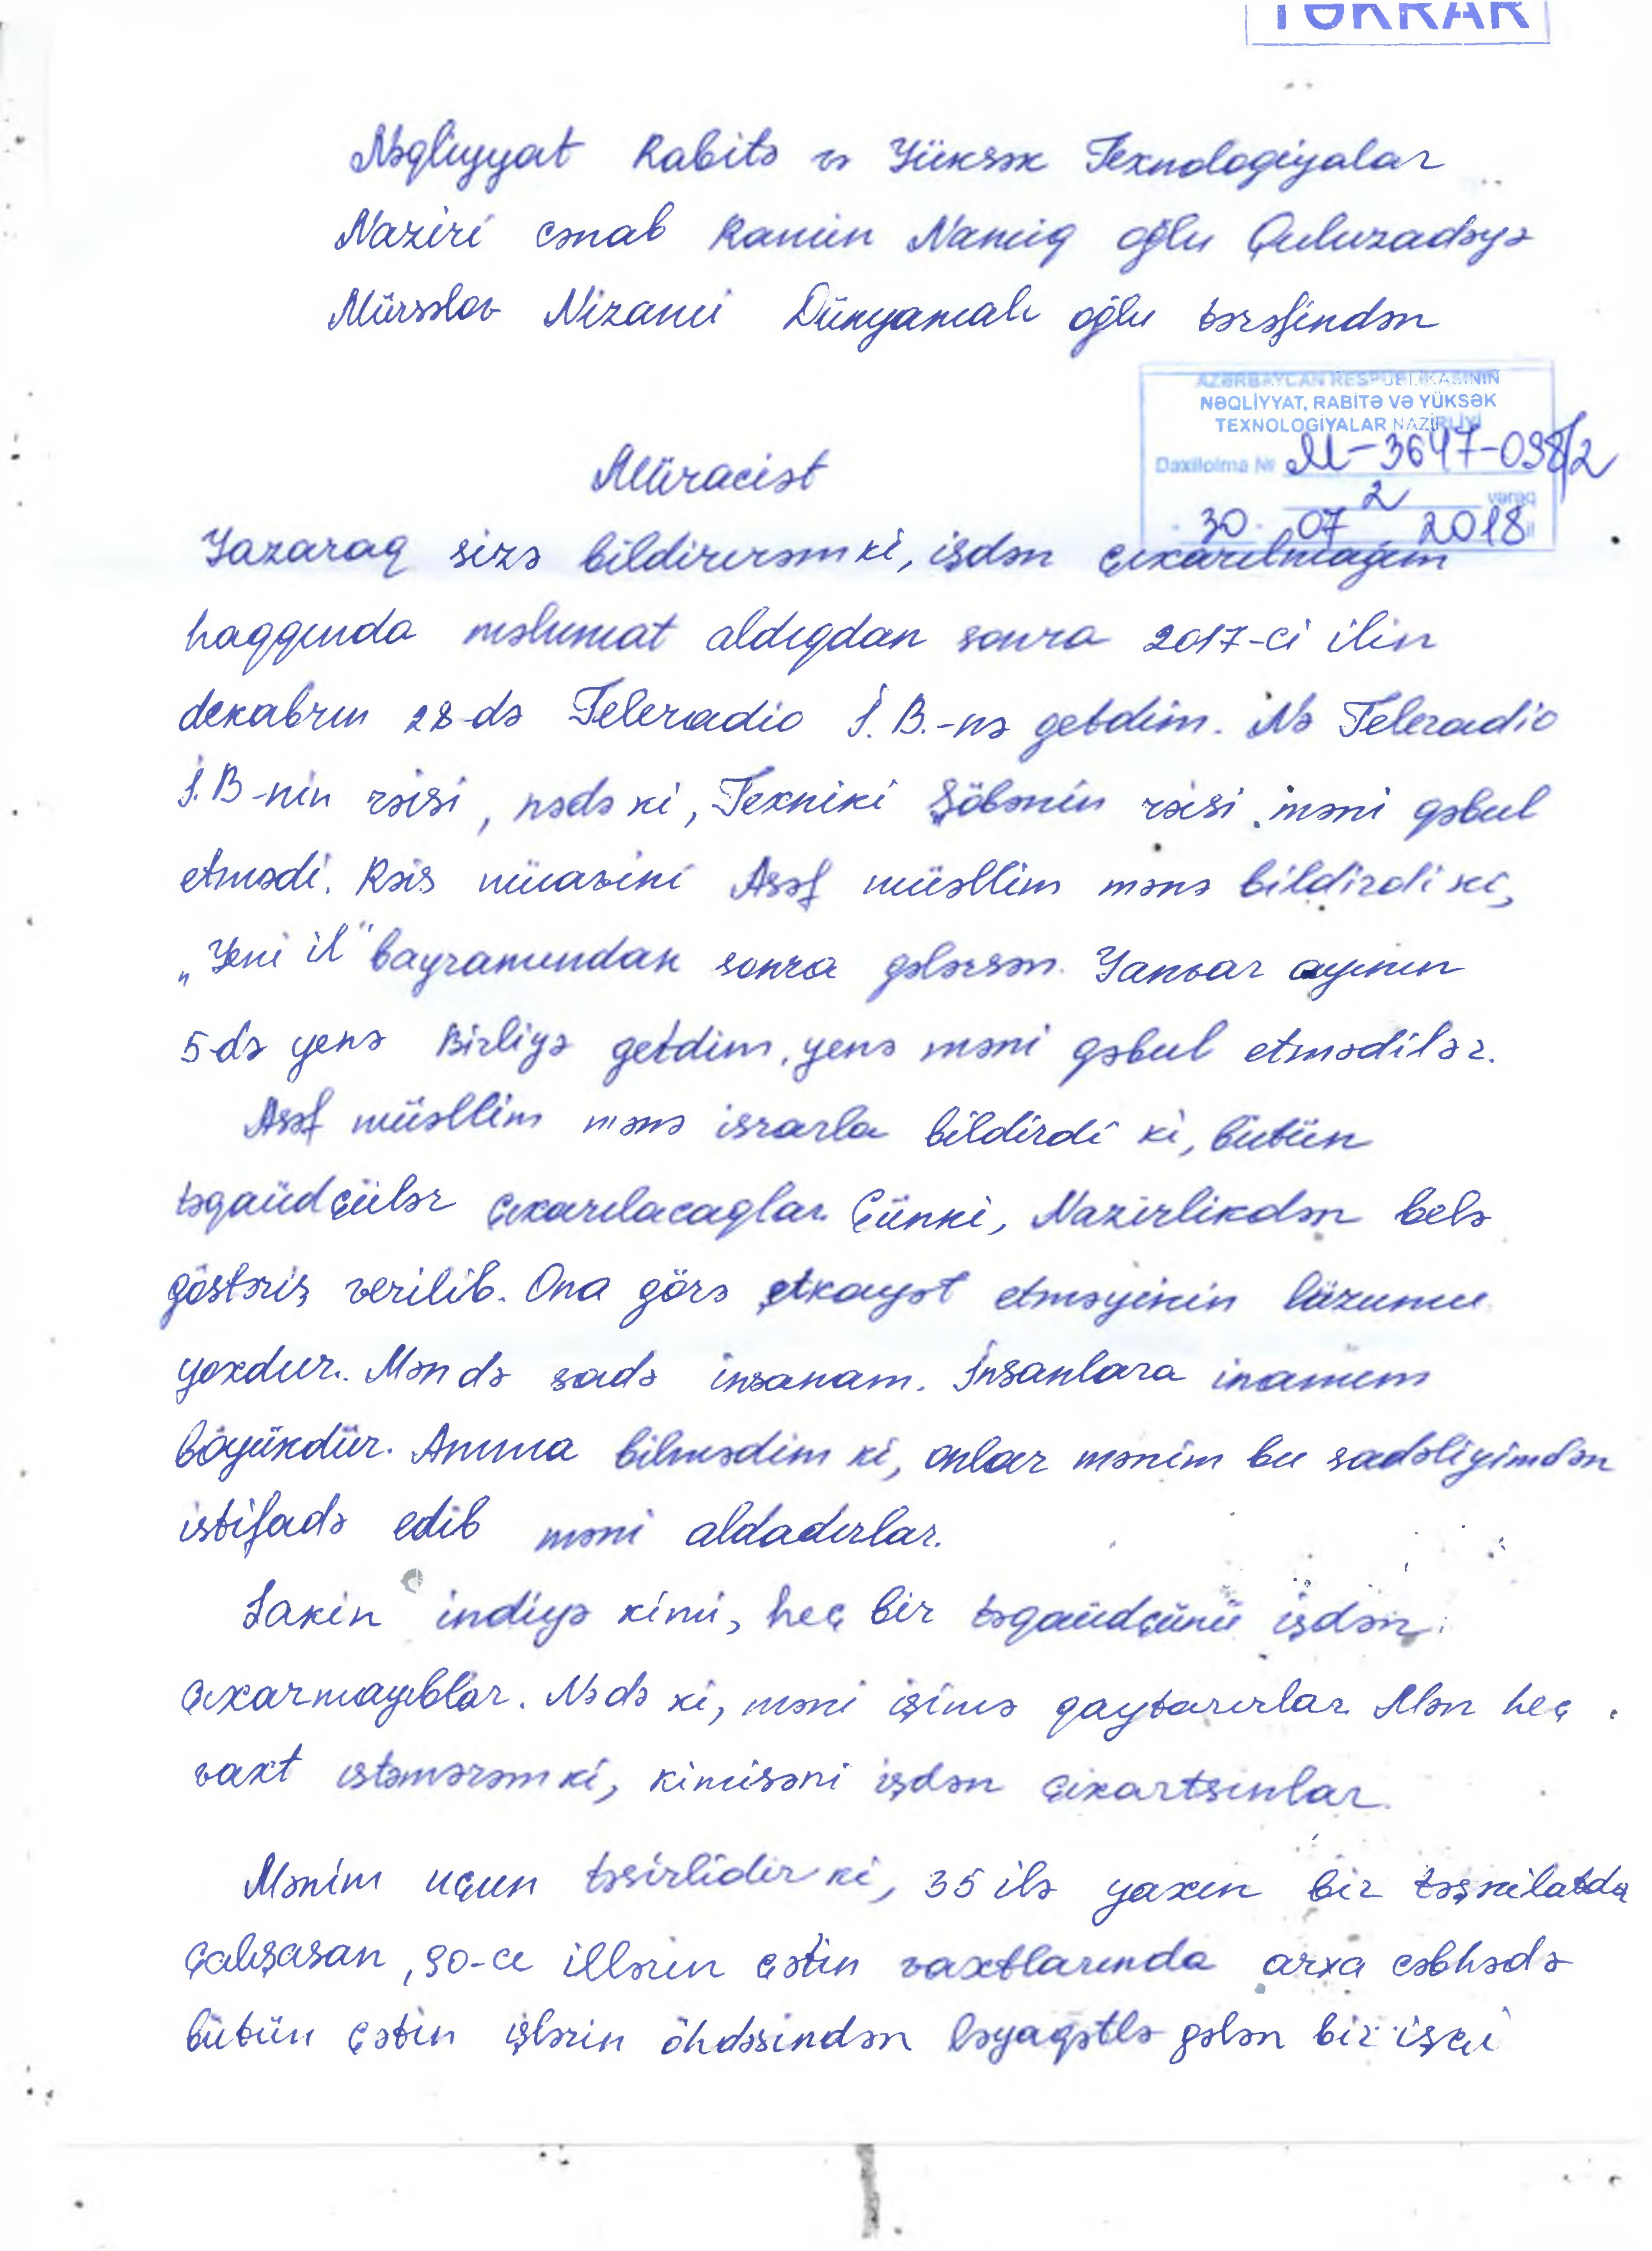 TƏKRAR
Nəqliyyat Rabitə və Yüksək Texnologiyalar
Naziri cənab Ramin Namiq oğlu Quluzadəyə
Mürsəlov Nizami Dünyamalı oğlu tərəfindən
AZƏRBAYCAN RESPUBLİKASININ
NƏQLİYYAT, RABİTƏ VƏ YÜKSƏK
TEXNOLOGİYALAR NAZİRLİYİ
Daxilolma № M-3647-098/2
2 vərəq
30 07 2018 il
Müraciət
Yazaraq sizə bildirirəm ki, işdən çıxarılmağım
haqqında məlumat aldıqdan sonra 2017-ci ilin
dekabrın 28-də Teleradio İ.B.-nə getdim. Nə Teleradio
İ.B-nin rəisi, nədə ki, Texniki Şöbənin rəisi məni qəbul
etmədi. Rəis müavini Asəf müəllim mənə bildirdi ki,
"Yeni il" bayramından sonra gələrsən. Yanvar ayının
5-də yenə Birliyə getdim, yenə məni qəbul etmədilər.
Asəf müəllim mənə israrla bildirdi ki, bütün
təqaüdçülər çıxarılacaqlar. Çünki, Nazirlikdən belə
göstəriş verilib. Ona görə şikayət etməyinin lüzumu
yoxdur. Mən də sadə insanam. İnsanlara inamım
böyükdür. Amma bilmədim ki, onlar mənim bu sadəliyimdən
istifadə edib məni aldadırlar.
Lakin indiyə kimi, heç bir təqaüdçünü işdən
çıxarmayıblar. Nə də ki, məni işimə qaytarırlar. Mən heç
vaxt istəmərəm ki, kimisəni işdən çıxartsınlar.
Mənim uçun təsirlidir ki, 35 ilə yaxın bir təşkilatda
çalışasan, 90-cı illərin çətin vaxtlarında arxa cəbhədə
bütün çətin işlərin öhdəsindən ləyaqətlə gələn bir işçi